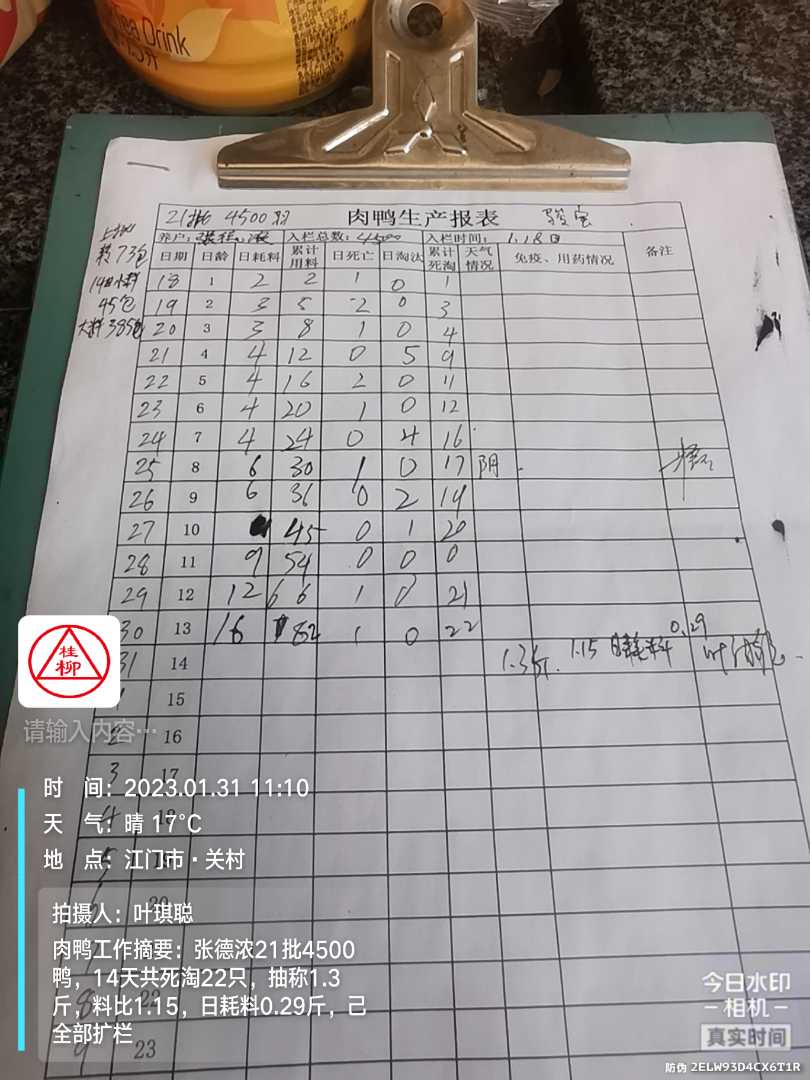 Tea Drink
21批 4500羽 肉鸭生产报表
养户: 入栏总数: 4500 入栏时间: 1.18日 备注
日期 日龄 日耗料 累计用料 日死亡 日淘汰 累计死淘 天气情况 免疫、用药情况
转73包
45包
大料385包
18 1 2 2 1 0 1
19 2 3 5 2 0 3
20 3 3 8 1 0 4
21 4 4 12 0 5 9
22 5 4 16 2 0 11
23 6 4 20 1 0 12
24 7 4 24 0 4 16
25 8 6 30 1 0 17 阴
26 9 6 36 0 2 19
27 10 45 0 1 20
28 11 9 54 0 0 0
29 12 12 66 1 0 21
30 13 16 82 1 0 22
31 14 1.3斤. 1.15 日耗料 0.29
15
2 16
3 17
4 18
23
桂柳
请输入内容…
时 间: 2023.01.31 11:10
天 气: 晴 17°C
地 点: 江门市·关村
拍摄人: 叶琪聪
肉鸭工作摘要: 张德浓21批4500
鸭，14天共死淘22只，抽称1.3
斤，料比1.15，日耗料0.29斤，己
全部扩栏
今日水印
相机
真实时间
防伪 2ELW93D4CX6T1R